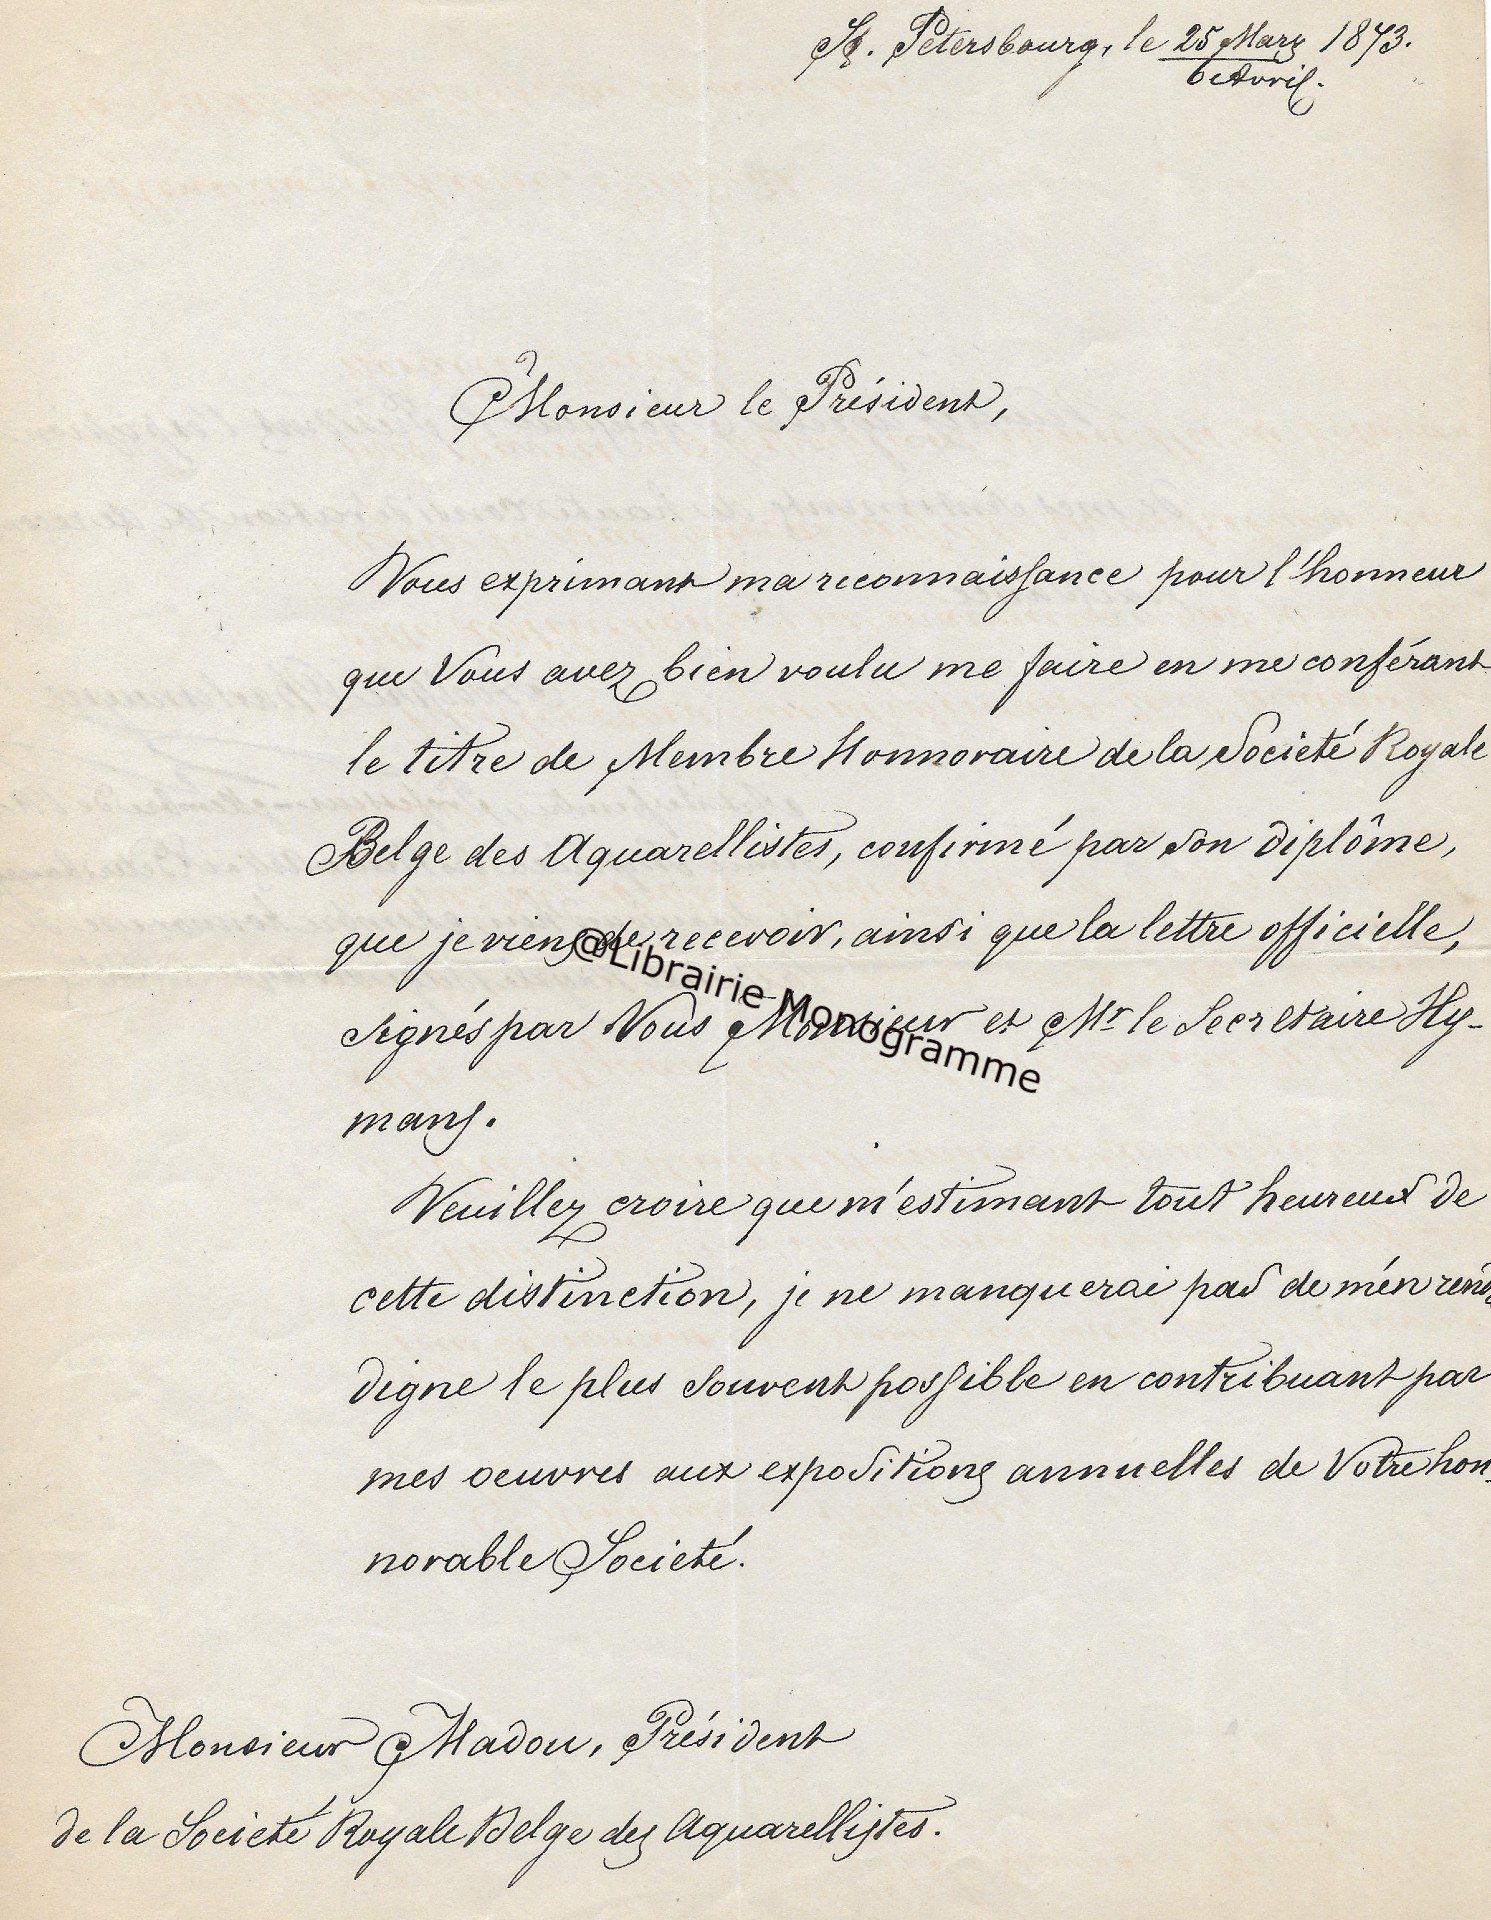 St. Pétersbourg, le 25 Mars 1873.
6 Avril.
Monsieur le Président,
Vous exprimant ma reconnaissance pour l'honneur
que Vous avez bien voulu me faire en me conférant
le titre de Membre Honnoraire de la Societé Royale
Belge des Aquarellistes, confirmé par son diplôme,
que je viens de recevoir, ainsi que la lettre officielle,
signés par Vous Monsieur et Mr le Secretaire Hy-
mans.
@Librairie Monogramme
Veuillez croire que m'estimant tout heureux de
cette distinction, je ne manquerai pas de m'én rend
digne le plus souvent possible en contribuant par
mes oeuvres aux expositions annuelles de Votre hon-
norable Societé.
Monsieur Madou, Président
de la Societé Royale Belge des Aquarellistes.